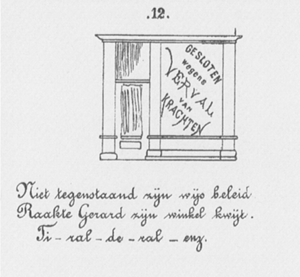 .12.
GESLOTEN
wegens
VERVAL
van
KRACHTEN
Niet tegenstaand zijn wijs beleid
Raakte Gerard zijn winkel kwijt.
Ti-ral-de-ral-enz.